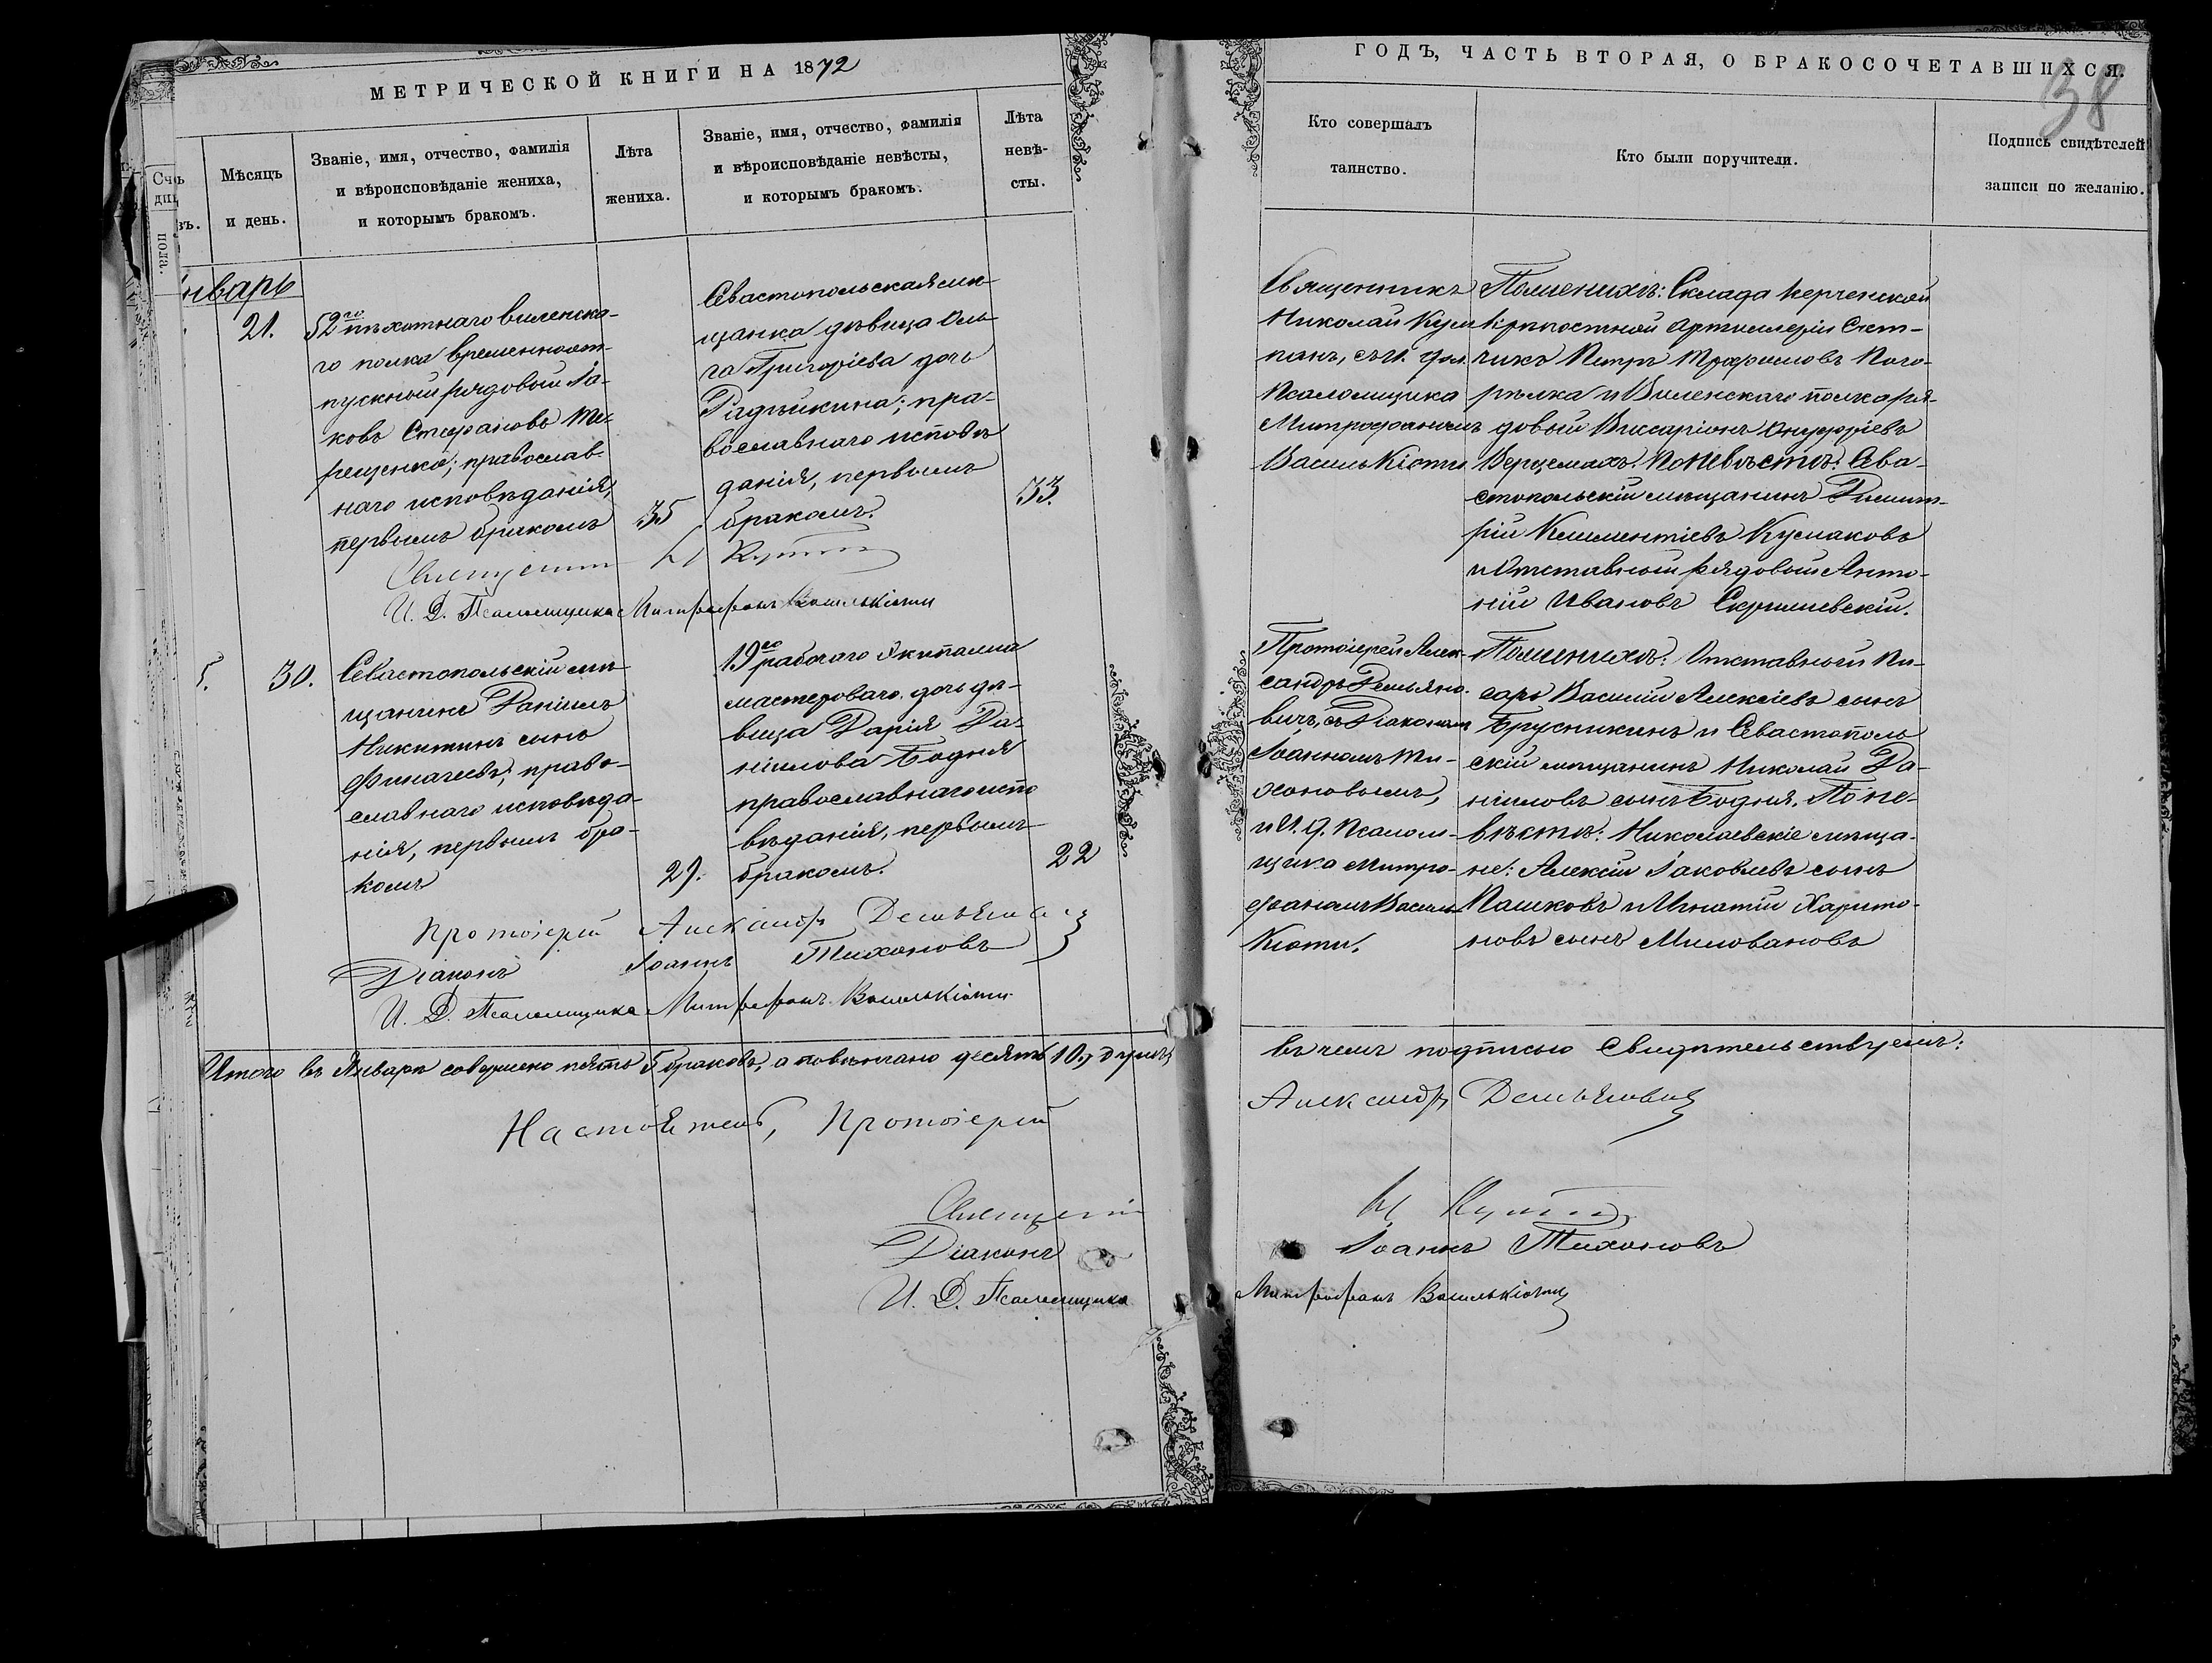 МЕТРИЧЕСКОЙ КНИГИ НА 1872
ГОДЪ, ЧАСТЬ ВТОРАЯ, О БРАКОСОЧЕТАВШИХСЯ.
38
Мѣсяцъ
и день.
Званіе, имя, отчество, фамилія
и вѣроисповѣданіе жениха,
и которымъ бракомъ.
Лѣта
жениха.
Званіе, имя, отчество, фамилія
и вѣроисповѣданіе невѣсты,
и которымъ бракомъ.
Лѣта
невѣ-
сты.
Кто совершалъ
таинство.
Кто были поручители.
Подпись свидѣтелей
записи по желанію.
нварь
21.
52го пѣхотнаго виленска-
го полка временноот-
пускной рядовой Іа-
ковъ Стефановъ Те-
рещенко; православ-
наго исповѣданія,
первымъ бракомъ
35
Севастопольская мѣ-
щанка дѣвица Оль-
га Григоріева дочь
Радѣйкина; пра-
вославнаго исповѣ-
данія, первымъ
бракомъ.
33.
Священникъ
Николай
съ И. дол.
Псаломщика
Митрофаномъ
Василькіоти
По женихѣ: Склада Керченской
крѣпостной Артиллеріи Счет-
чикъ Петръ Трофимовъ Пого-
рѣлка и Виленскаго полка ря-
довый Виссаріонъ Онуфріевъ
По невѣстѣ: Сева-
стопольскій мѣщанинъ Димит-
рій Климентіевъ Кусмаковъ
и Отставной рядовый Анто-
ній Ивановъ
Священникъ Н
И. Д. Псаломщика Митрофанъ Василькіоти
5.
30.
Севастопольскій мѣ-
щанинъ Даніилъ
Никитинъ сынъ
Финагеевъ; право-
славнаго исповѣда-
нія, первымъ бра-
комъ
29.
19го рабочаго Экипажа
мастероваго дочь дѣ-
вица Дарія Да-
ніилова Бодня
православнаго испо
вѣданія, первымъ
бракомъ.
22
Протоіерей Алек-
сандръ Демьяно-
вичъ, съ Діакономъ
Іоанномъ Ти-
хоновымъ,
и И. д. Псалом-
щика Митро-
фаномъ Василь
Кіоти.
По женихѣ: Отставной Пи-
сарь Василій Алексіевъ сынъ
Брусникинъ и Севастополь
скій мѣщанинъ Николай Да-
ніиловъ сынъ Бодня. По не-
вѣстѣ: Николаевскіе мѣща-
не: Алексій Іаковлевъ сынъ
Пашковъ и Игнатій Харито-
новъ сынъ Миловановъ
Протоіерей Александръ
Діаконъ Іоаннъ Тихоновъ
И. Д. Псаломщика Митрофанъ Василькіоти
Итого въ Январѣ совершено пять 5 браковъ, а повѣнчано десять 10, душъ,
въ чемъ подписью Свидѣтельствуемъ:
Настоятель, Протоіерей Александръ Демьяновичъ
Священникъ Н
Діаконъ Іоаннъ Тихоновъ
И. Д. Псаломщика Митрофанъ Василькіоти